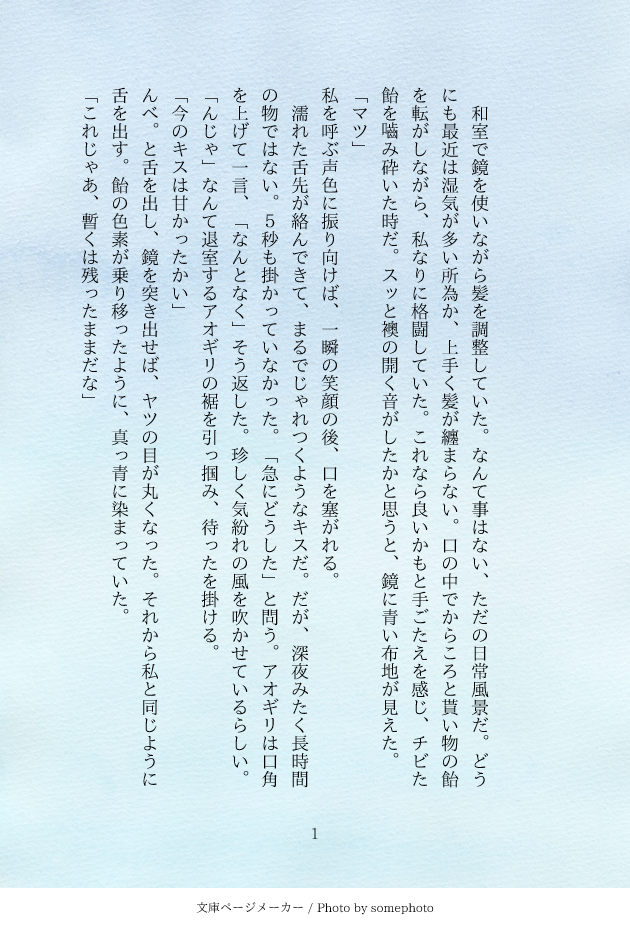 和室で鏡を使いながら髪を調整していた。なんて事はない、ただの日常風景だ。どう
にも最近は湿気が多い所為か、上手く髪が纏まらない。口の中でからころと貰い物の飴
を転がしながら、私なりに格闘していた。これなら良いかもと手ごたえを感じ、チビた
飴を嚙み砕いた時だ。スッと襖の開く音がしたかと思うと、鏡に青い布地が見えた。
「マツ」
私を呼ぶ声色に振り向けば、一瞬の笑顔の後、口を塞がれる。
　濡れた舌先が絡んできて、まるでじゃれつくようなキスだ。だが、深夜みたく長時間
の物ではない。５秒も掛かっていなかった。「急にどうした」と問う。アオギリは口角
を上げて一言、「なんとなく」そう返した。珍しく気紛れの風を吹かせているらしい。
「んじゃ」なんて退室するアオギリの裾を引っ掴み、待ったを掛ける。
「今のキスは甘かったかい」
んべ。と舌を出し、鏡を突き出せば、ヤツの目が丸くなった。それから私と同じように
舌を出す。飴の色素が乗り移ったように、真っ青に染まっていた。
「これじゃあ、暫くは残ったままだな」
1
文庫ページメーカー / Photo by somephoto